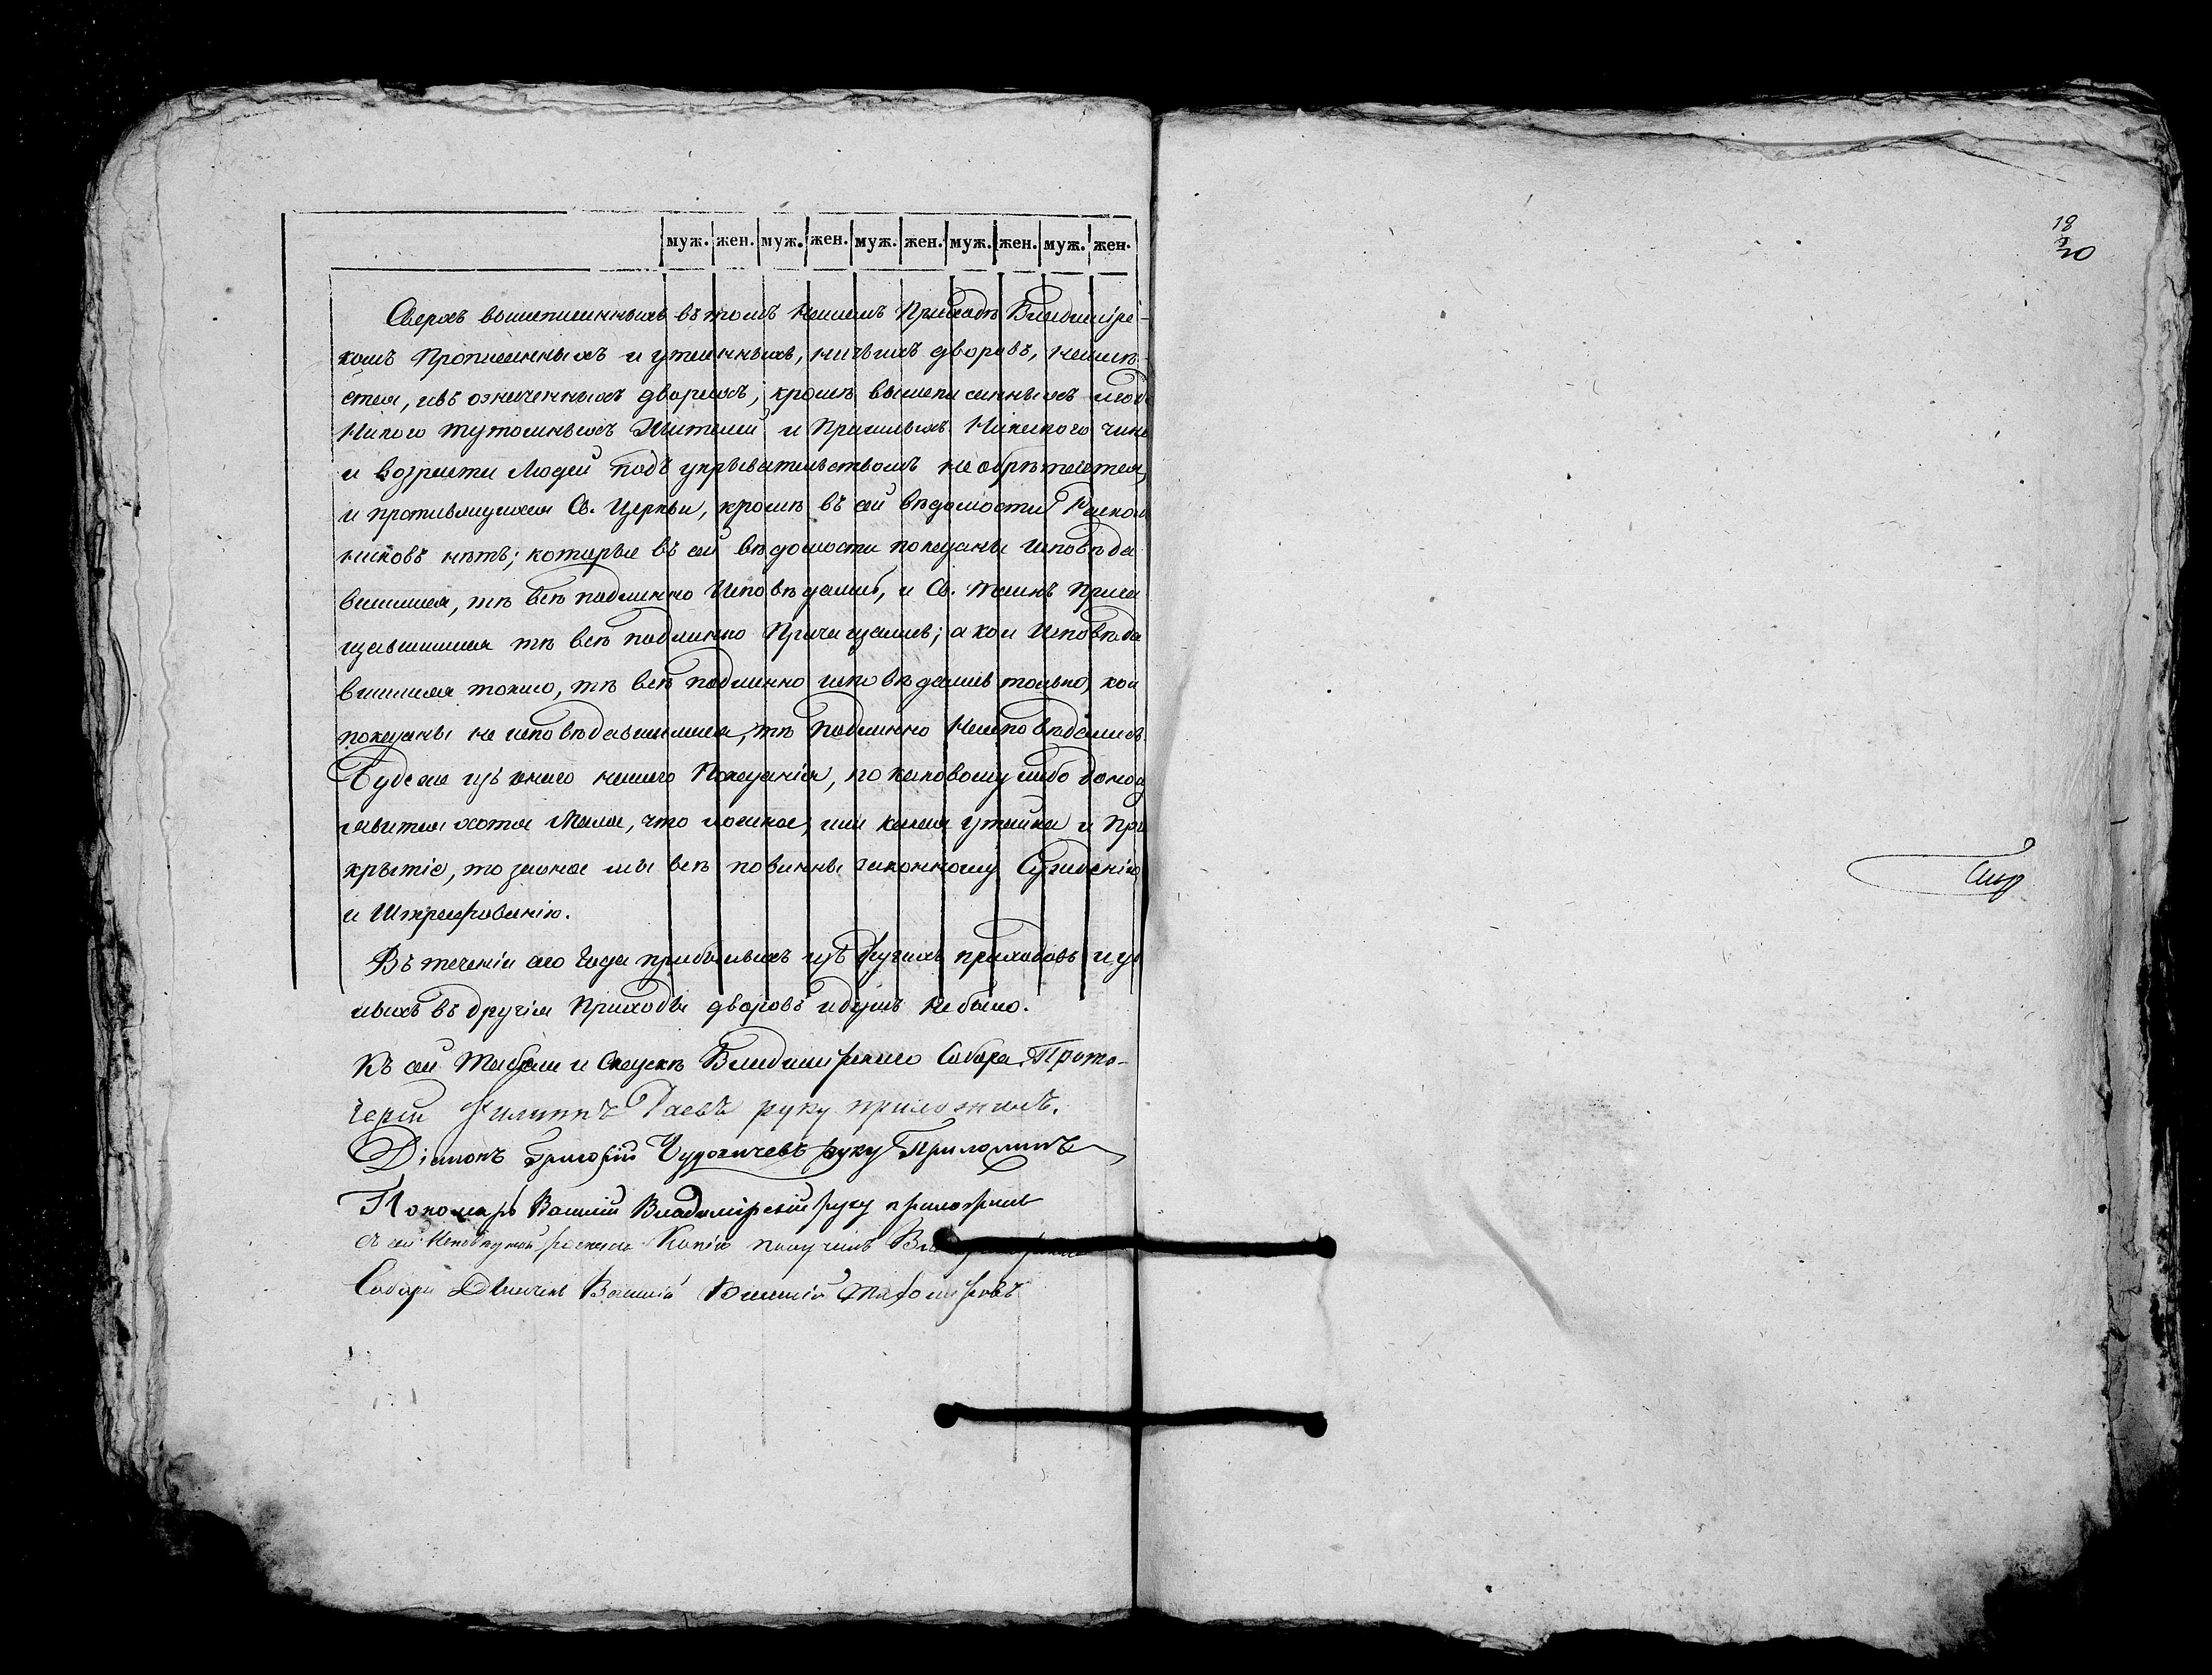 муж. жен. муж. жен. муж. жен. муж. жен. муж. жен.
18
20
Сверхъ вышеписанныхъ въ томъ нашемъ Приходѣ Владимірс-
комъ Прописанныхъ и утаенныхъ, ничьихъ дворовъ, неимѣ-
ется, ивъ означенныхъ дворахъ, кромѣ вышеписанныхъ людей
Никого тутошныхъ Жителей и Пришлыхъ Никакого чина
и возраста Людей подъ укрывательствомъ не обрѣтается,
и противляущихся Св. Церкви, кромѣ въ сей вѣдомости Раскол
никовъ нѣтъ; которые въ сей вѣдомости показаны исповѣда
вшимися, тѣ всѣ подлинно Исповѣдались, и Св. Таинъ Прича
щавшимися тѣ всѣ подлинно Причащались; а кои Исповѣда
вшимися токмо, тѣ всѣ подлинно исповѣдались только, кои
показаны не исповѣдавшимися, тѣ подлинно Неисповѣдались.
Будеже изъ онаго нашего Показанія, по каковому либо доносу
явится хотя Мало, что ложное, или какая утайка и При
крытіе, то за оное мы всѣ повинны законному Сужденію
и Штрафованію.
Въ теченіи сего Года прибылыхъ изъ другихъ приходовъ и убы
лыхъ въ другія Приходы дворовъ и душъ не было.
Къ сей Табели и Сказкѣ Владимірскаго Собора Прото-
іерей Филиппъ Раевъ руку приложилъ.
Діаконъ Григорій руку Приложилъ
Пономарь Василій Владимірскій руку приложилъ
съ сей Исповѣдной росписи Копію получилъ
Собора Дьячекъ Василій